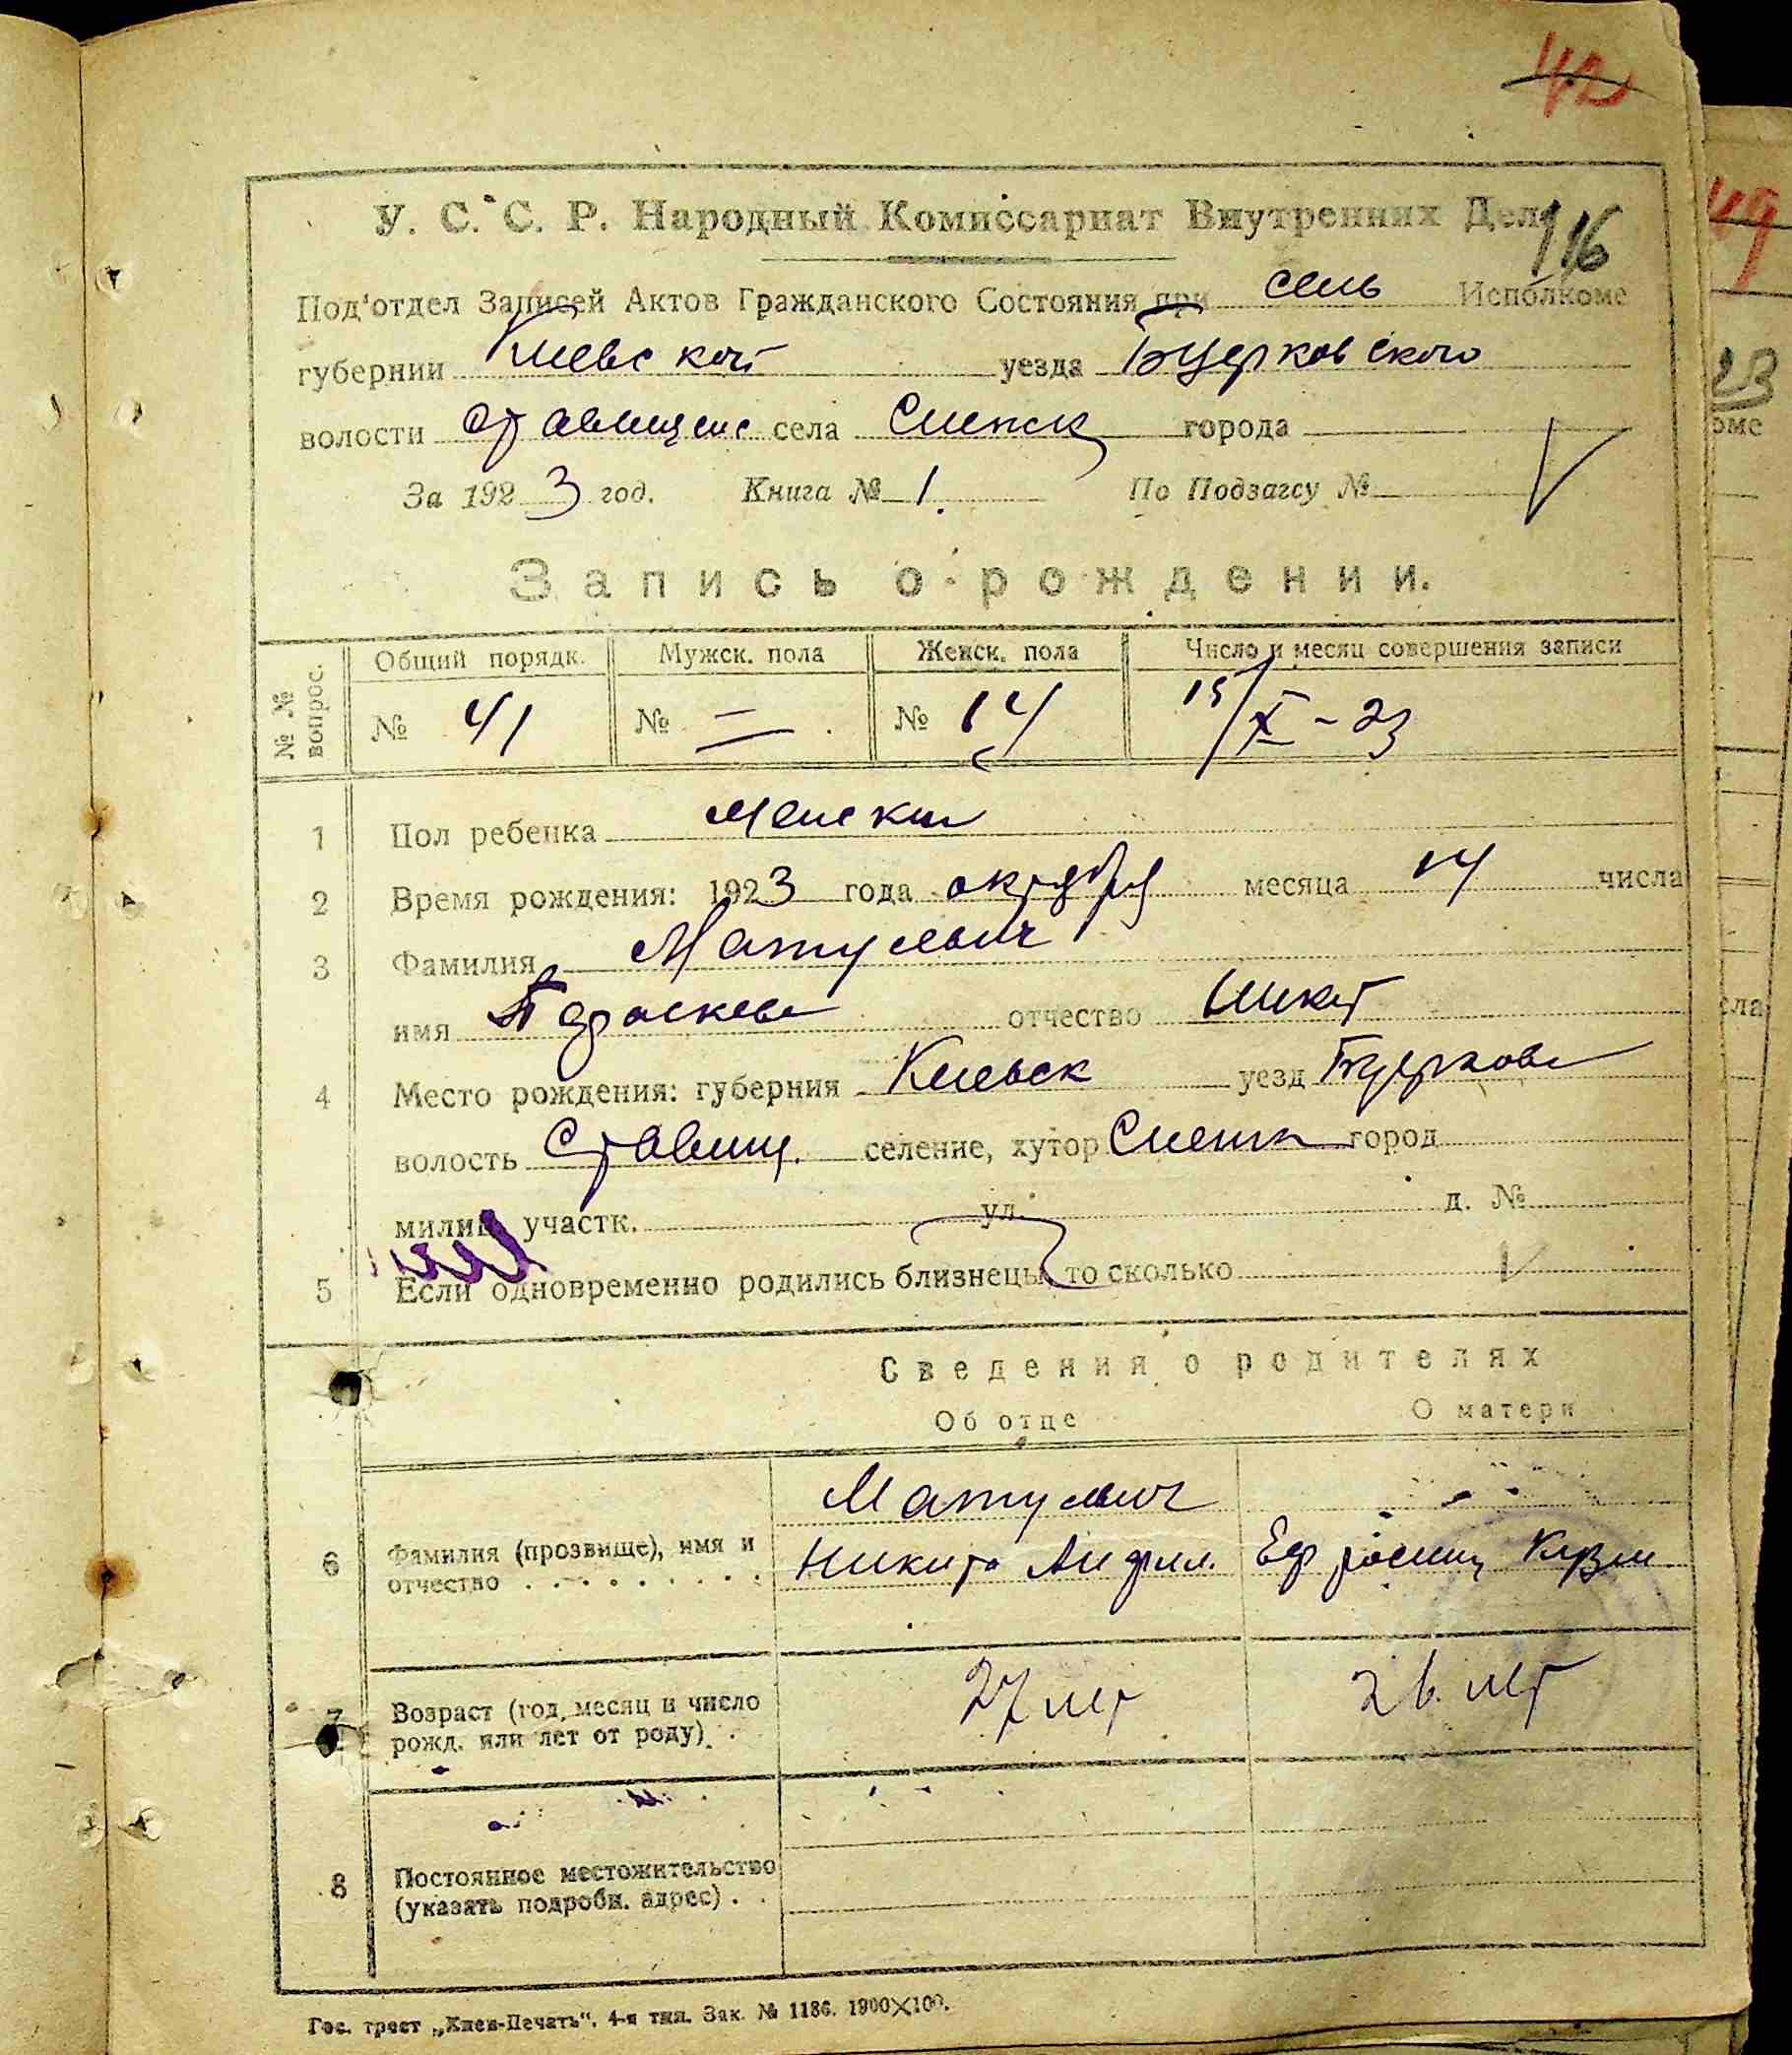 42
У. С. С. Р. Народный Комиссариат Внутренних Дел
116
Под'отдел Записей Актов Гражданского Состояния при сель Исполкоме
губернии Киевской уезда Бцерковского
волости Ставищанс села города
За 1923 год. Книга № 1. По Подзагсу №
Запись о рождении.
№ № вопрос.
Общий порядк. Мужск. пола Женск. пола Число и месяц совершения записи
№ 41 № — № 14 15/X - 23
1 Пол ребенка женский
2 Время рождения: 1923 года октября месяца 14 числа
3 Фамилия Матулевич
имя отчество Никит
4 Место рождения: губерния Киевск уезд Бцеркове
волость Ставищ. селение, хутор город
милиц. участк. ул. д. №
5 Если одновременно родились близнецы, то сколько
Сведения о родителях
Об отце О матери
Матулевич
6 Фамилия (прозвище), имя и отчество Никита Ефросиния Кузм
7 Возраст (год, месяц и число рожд. или лет от роду) 27 лет 26 лет
8 Постоянное местожительство (указать подробн. адрес)
Гос. трест „Киев-Печать“. 4-я тип. Зак. № 1186. 1900×100.